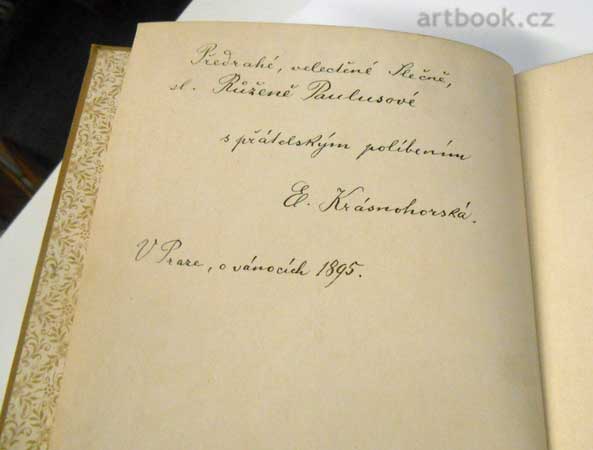 artbook.cz
Předrahé, velectěné Slečně,
sl. Růženě Paulusové
s přátelským políbením
El. Krásnohorská.
V Praze, o vánocích 1895.